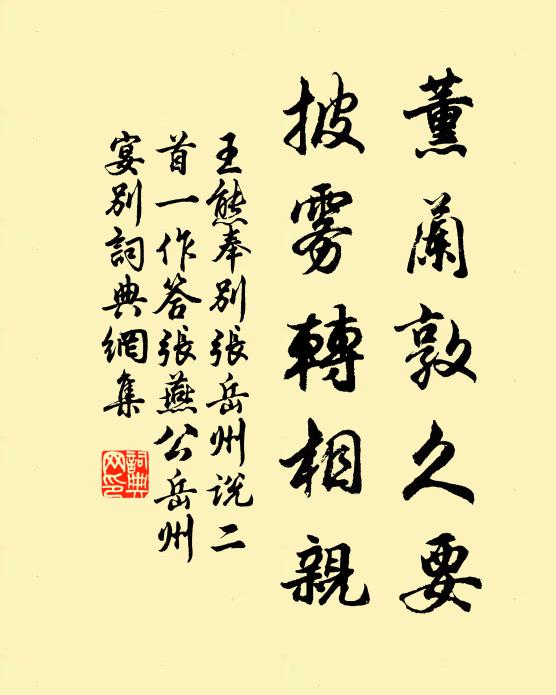 薰蘭敦久要
披雾轉相親
王熊奉別張岳州說二
首一作答張燕公岳州
宴別詞典網集
詞典
网印